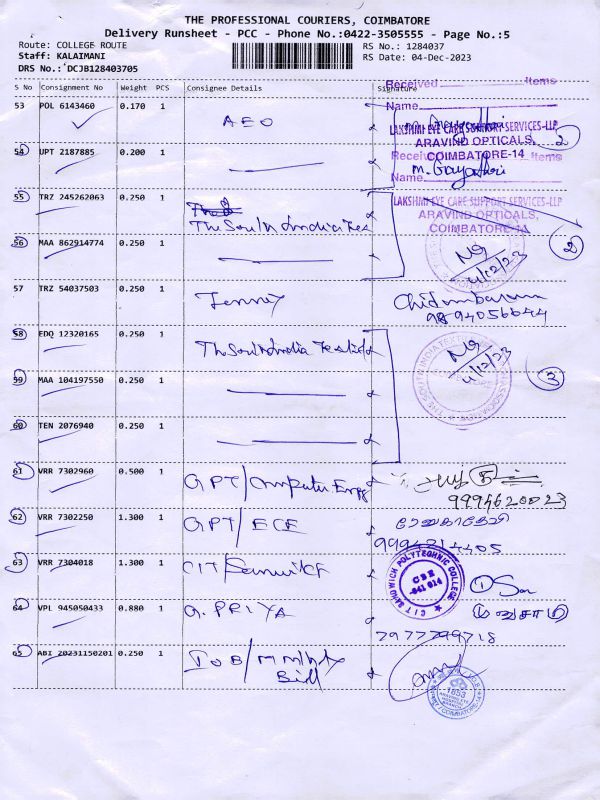 THE PROFESSIONAL COURIERS, COIMBATORE
Delivery Runsheet - PCC - Phone No.:0422-3505555 - Page No.:5
Route: COLLEGE ROUTE
RS No.: 1284037
Staff: KALAIMANI
RS Date: 04-Dec-2023
DRS No.: DCJB128403705
S No Consignment No Weight PCS Consignee Details Signature
Received Items
Name
53 POL 6143460 0.170 1 AEO
LAKSHMI EYE CARE SUPPORT SERVICES-LLP
ARAVIND OPTICALS, 2
COIMBATORE-14
54 UPT 2187885 0.200 1
Received Items
Name M. Gayathri
55 TRZ 245262063 0.250 1 The South India Tex
LAKSHMI EYE CARE SUPPORT SERVICES-LLP
ARAVIND OPTICALS,
COIMBATORE-14
56 MAA 862914774 0.250 1
4/12/23 2
57 TRZ 54037503 0.250 1 Jenny Chidambaram
9894056644
58 EDQ 12320165 0.250 1 The South India Textile
4/12/23
THE SOUTH INDIA TEXTILE ASSOCIATION
59 MAA 104197550 0.250 1 3
60 TEN 2076940 0.250 1
61 VRR 7302960 0.500 1 GPT/Computer Engg
9994620023
62 VRR 7302250 1.300 1 GPT/ECE ரேணுகாதேவி
9994214405
63 VRR 7304018 1.300 1 CIT/
CIT SANDWICH POLYTECHNIC COLLEGE
CBE
-641 014
1
64 VPL 945050433 0.880 1 G. PRIYA
7977799718
65 ABI 20231150201 0.250 1 IOB/
Bill
1653
COIMBATORE-14